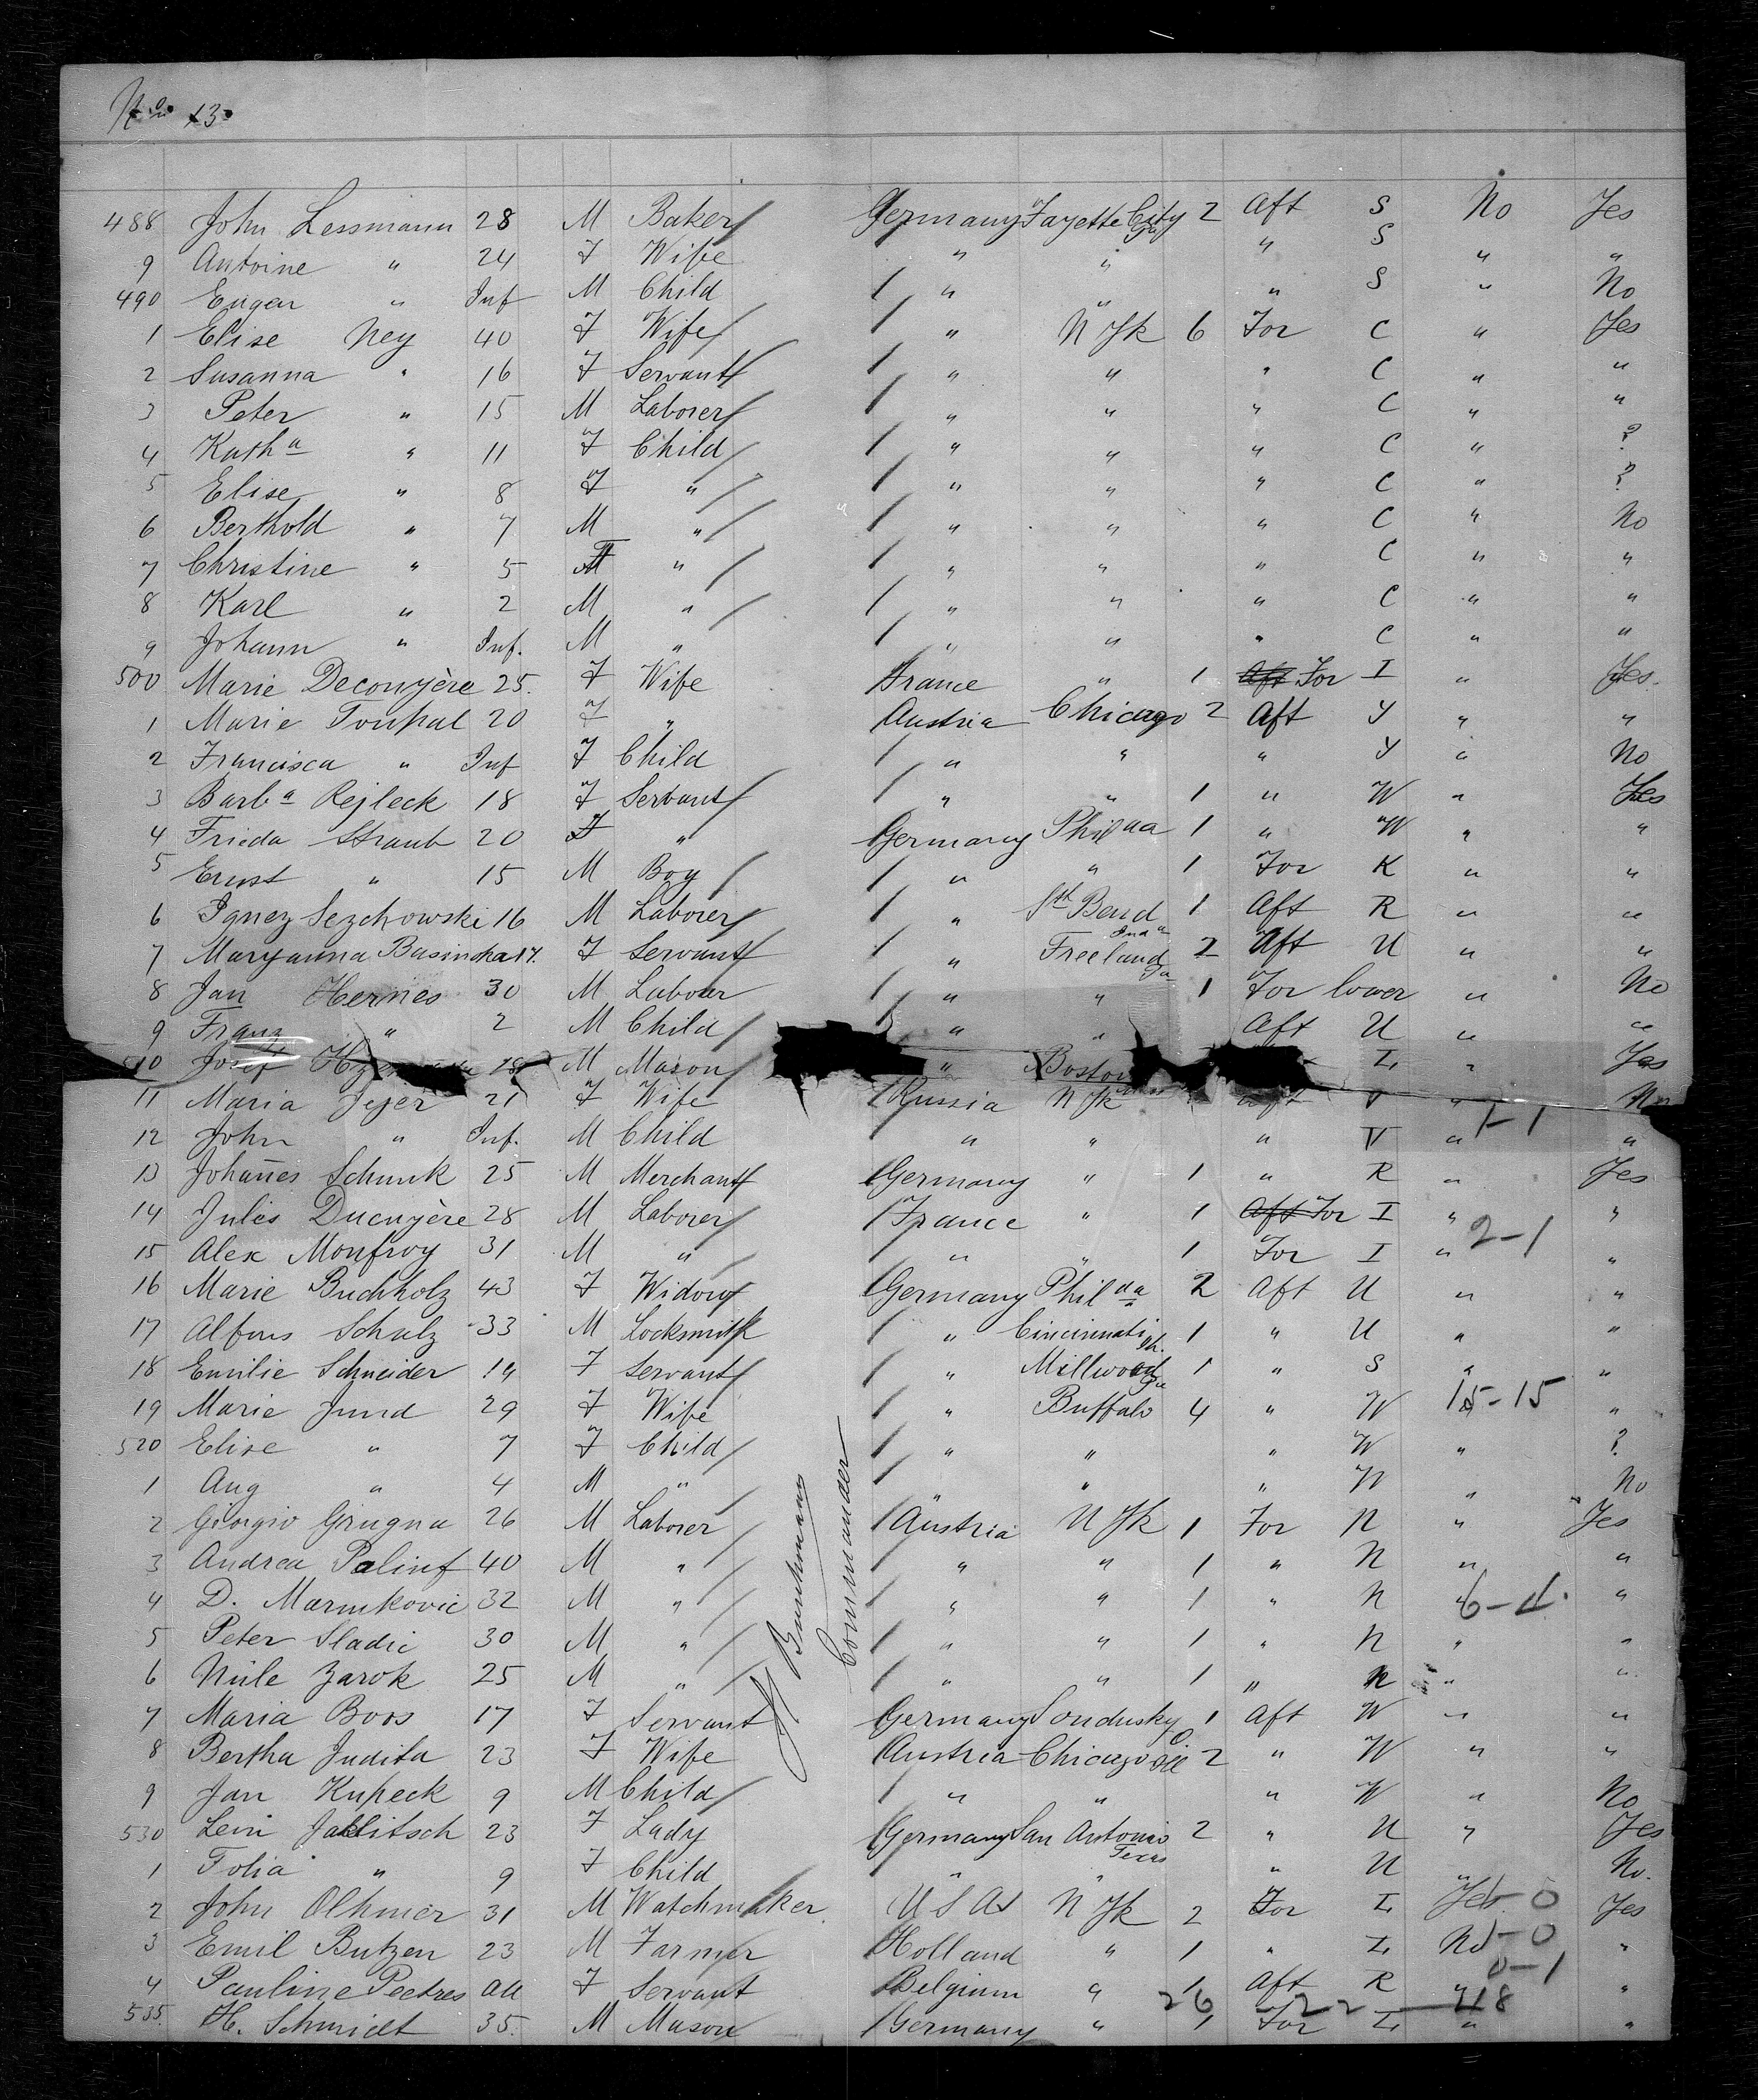 No 13.
488 John Lessmann 28 M Baker Germany Fayette City 2 Aft S No Yes
9 Antoine " 24 F Wife " " " S " "
490 Eugen " Inf M Child " " " S " No
1 Elise Ney 40 F Wife " N Yk 6 For C " Yes
2 Susanna " 16 F Servant " " " C " "
3 Peter " 15 M Laborer " " " C " "
4 Katha " 11 F Child " " " C " ?
5 Elise " 8 F " " " " C " ?
6 Berthold " 7 M " " " " C " No
7 Christine " 5 F " " " " C " "
8 Karl " 2 M " " " " C " "
9 Johann " Inf. M " " " " C " "
500 Marie Decouyère 25. F Wife France " 1 Aft For I " Yes.
1 Marie Toupal 20 F " Austria Chicago 2 Aft Y " "
2 Francisca " Inf F Child " " " Y " No
3 Barba Rejleck 18 F Servant " " 1 " W " Yes
4 Frieda Straub 20 F " Germany Philda 1 " W " "
5 Ernst " 15 M Boy " " 1 For K " "
6 Ignez Sezchowski 16 M Laborer " Sth Bend Inda 1 Aft R " "
7 Maryanna Basinska 17. F Servant " Freeland Pa 2 Aft U " "
8 Jan Hernes 30 M Labour " " 1 For lower " No
9 Franz " 2 M Child " " Aft U " "
510 Josef 18 M Mason " Boston I " Yes
11 Maria Jejer 21 F Wife Russia N Yk Aft V " No
1-1
12 John " Inf. M Child " " " V " "
13 Johañes Schunk 25 M Merchant Germany " 1 " R " Yes
14 Jules Ducuyère 28 M Laborer France " 1 Aft For I " "
2-1
15 Alex Monfroy 31 M " " " 1 For I " "
16 Marie Buchholz 43 F Widow Germany Philda 2 Aft U " "
17 Alfons Schulz 33 M Locksmith " Cincinnati Oh. 1 " U " "
18 Emilie Schneider 19 F Servant " Millwood Pa 1 " S " "
19 Marie Jund 29 F Wife " Buffalo 4 " W " "
15-15
520 Elise " 7 F Child " " " W " ?
1 Aug " 4 M " " " " W " No
2 Giorgio Grugna 26 M Laborer Austria N Yk 1 For N " Yes
3 Andrea Palinf 40 M " " " 1 " N " "
4 D. Marnkovic 32 M " " " 1 " N " "
6-4.
5 Peter Sladic 30 M " " " 1 " N " "
6 Nule Zarok 25 M " " " 1 " N " "
7 Maria Boos 17 F Servant Germany Sondusky O 1 Aft W " "
8 Bertha Judita 23 F Wife Austria Chicago Ill 2 " W " "
9 Jan Kupeck 9 M Child " " " W " No
530 Leni Jablitsch 23 F Lady Germany San Antonio Texas 2 " U " Yes
1 Tolia " 9 F Child " " " U " No.
2 John Olhmer 31 M Watchmaker U S A N Yk 2 For I Yes Yes
1-0
3 Emil Butzen 23 M Farmer Holland " 1 " I No "
1-0
0-1
4 Pauline Peetres F Servant Belgium " 1 Aft R " "
26 - 22 - 18
535. H. Schmidt 35. M Mason Germany " 1 For I " "
Commander